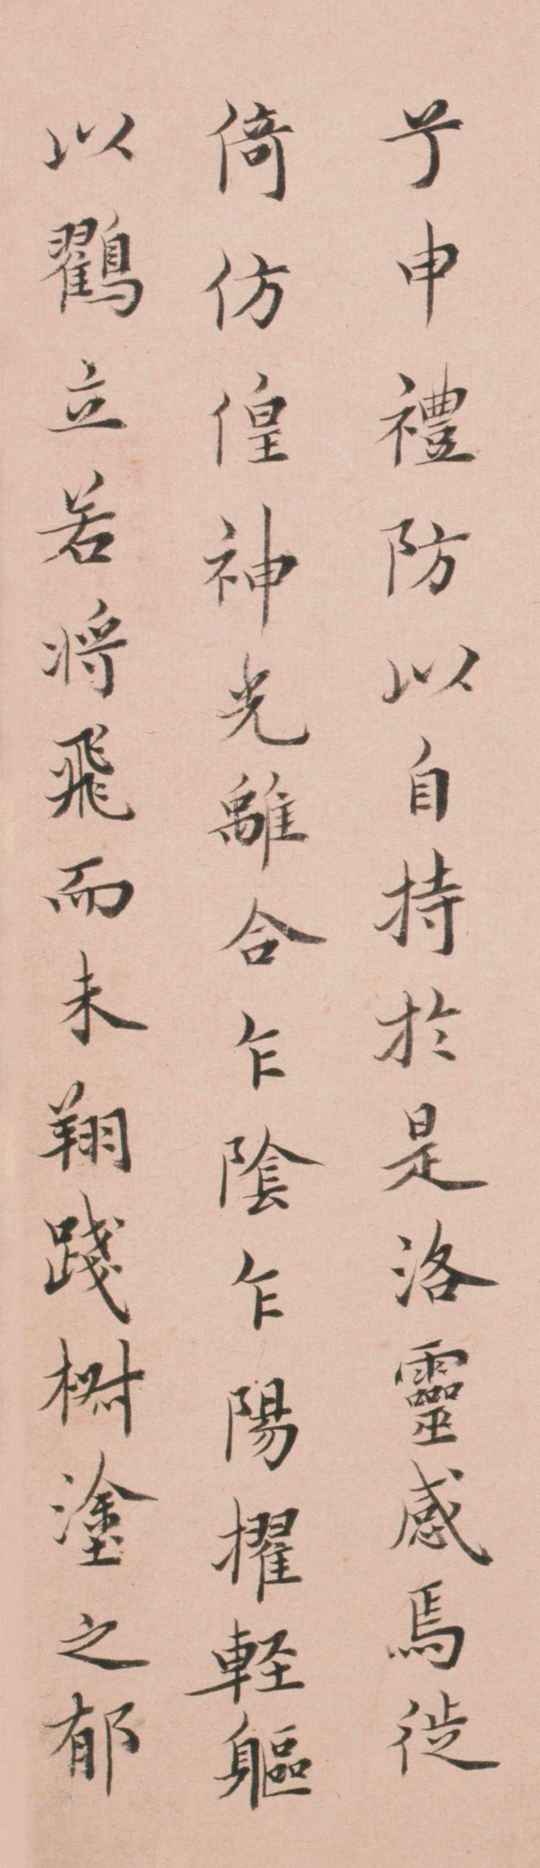 兮申禮防以自持於是洛靈感焉徙
倚仿偟神光離合乍陰乍陽擢軽軀
以鸖立若将飛而未翔踐椒塗之郁